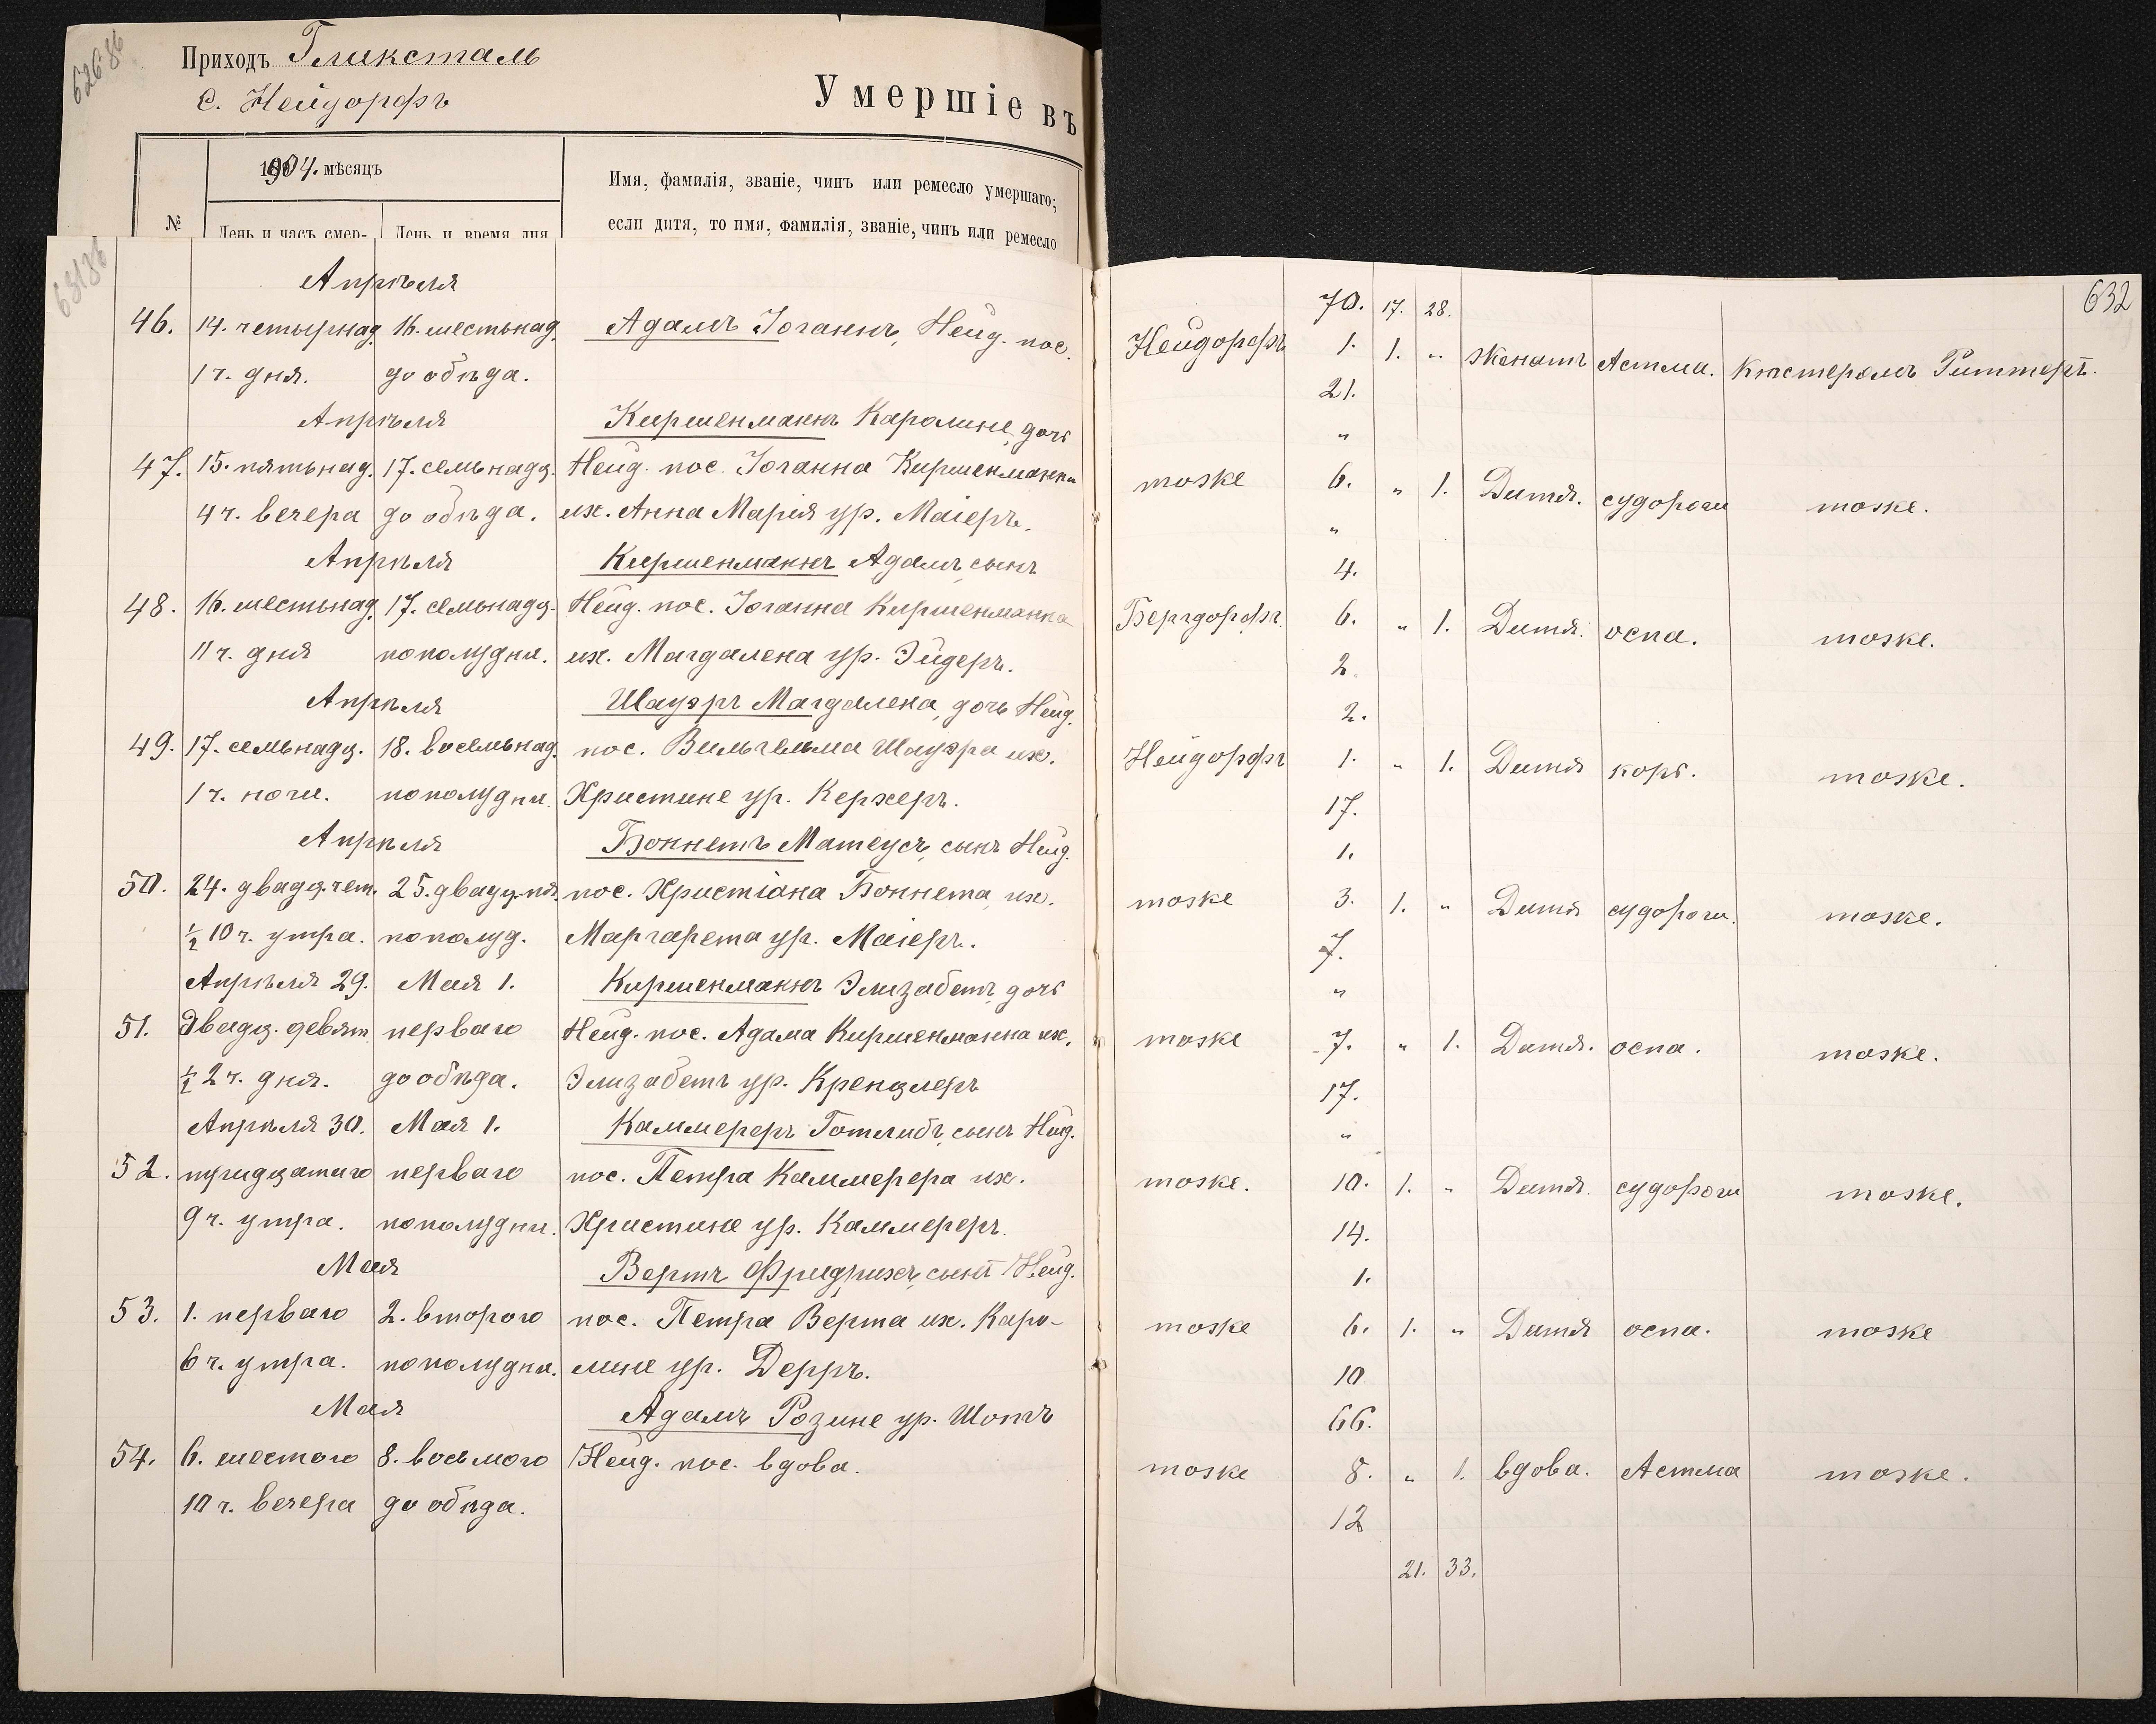 62686
Приходъ Гликсталь
с. Нейдорфъ
Умершіе въ
1904. мѣсяцъ
Имя, фамилія, званіе, чинъ или ремесло умершаго;
№
День и часъ смер-
День и время дня
если дитя, то имя, фамилія, званіе, чинъ или ремесло
632
Апрѣля
70. 17. 28.
46. 14. четырнад. 16. шестьнад. Адамъ Іоганнъ, Нейд. пос. Нейдорфъ 1. 1. " Женатъ Астма. Кистеромъ Риттеръ.
1 ч. дня. до обѣда. 21.
Апрѣля Киршенманнъ Каролине, дочь "
47. 15. пятьнад. 17. семьнадц. Нейд. пос. Іоганна Киршенманна тоже 6. " 1. Дитя. судороги тоже.
4 ч. вечера до обѣда. их. Анна Марія ур. Маіеръ. "
Апрѣля Киршенманнъ Адамъ, сынъ 4.
48. 16. шестьнад. 17. семьнадц. Нейд. пос. Іоганна Киршенманна Бергдорфъ. 6. " 1. Дитя. оспа. тоже.
11 ч. дня пополудни. их. Магдалена ур. Эйдеръ. 2.
Апрѣля Шауэръ Магдалена, дочь Нейд. 2.
49. 17. семьнадц. 18. восемьнад. пос. Вильгельма Шауэра их. Нейдорфъ 1. " 1. Дитя корь. тоже.
1 ч. ночи. пополудни. Христине ур. Керхеръ. 17.
Апрѣля Боннетъ Матеусъ, сынъ Нейд. 1.
50. 24. двадц. чет. 25. двадц. пя. пос. Христіана Боннета, их. тоже 3. 1. " Дитя судороги. тоже.
½ 10 ч. утра. пополуд. Маргарета ур. Маіеръ. 7.
Апрѣля 29. Мая 1. Киршенманнъ Элизабетъ, дочь "
51. Двадц. девят. перваго Нейд. пос. Адама Киршенманна их. тоже 7. " 1. Дитя. оспа. тоже.
½ 2 ч. дня. до обѣда. Элизабетъ ур. Кренцлеръ 17.
Апрѣля 30. Мая 1. Каммереръ Готлибъ, сынъ Нейд. "
52. тридцатаго перваго пос. Петра Каммерера их. тоже. 10. 1. " Дитя. судороги тоже.
9 ч. утра. пополудни. Христине ур. Каммереръ. 14.
Мая Вертъ Фридрихъ, сынъ Нейд. 1.
53. 1. перваго 2. второго пос. Петра Верта их. Каро- тоже 6. 1. " Дитя оспа. тоже
6 ч. утра. пополудни. лине ур. Дерръ. 10
Мая Адамъ Розине ур. Шоттъ 66.
54. 6. шестого 8. восьмого Нейд. пос. вдова. тоже 8. " 1. вдова. Астма тоже.
10 ч. вечера до обѣда. 12
21. 33.